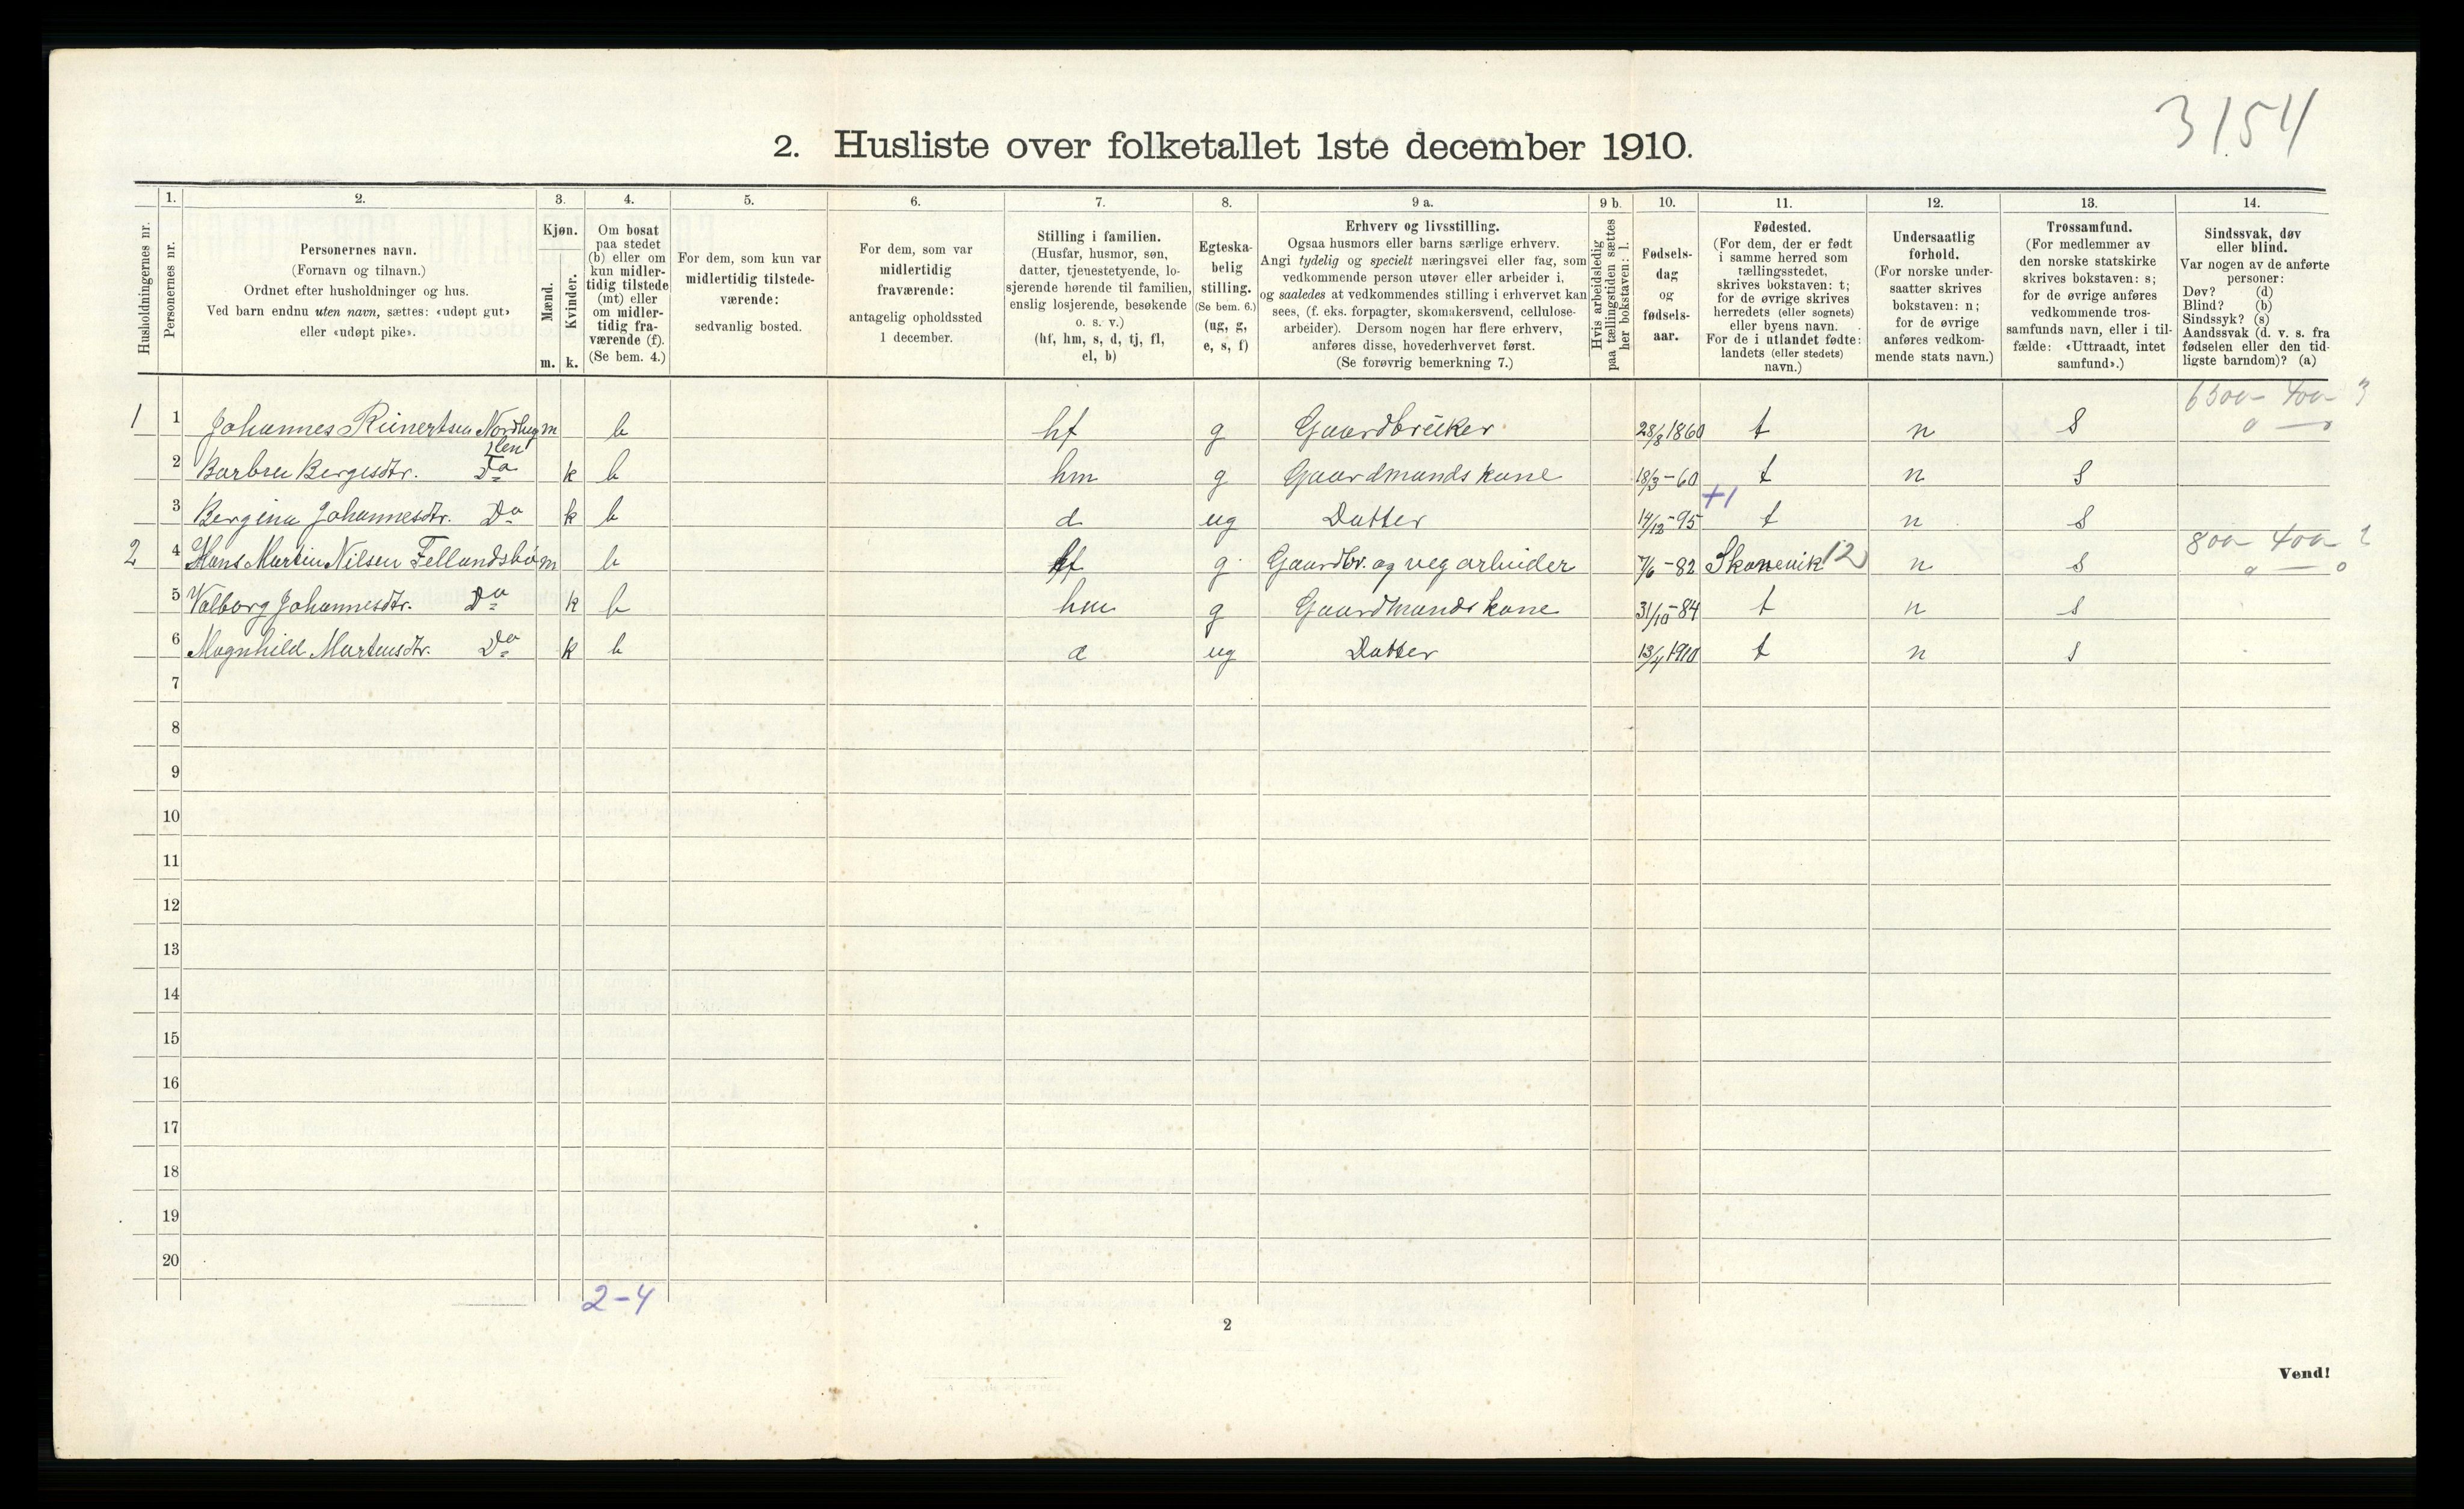 3154
2. Husliste over folketallet 1ste december 1910.
Husholdningernes nr.
1.
Personernes nr.
2.
Personernes navn.
(Fornavn og tilnavn.)
Ordnet efter husholdninger og hus.
Ved barn endnu uten navn, sættes: «udøpt gut»
eller «udøpt pike».
3.
Kjøn.
Mænd.
Kvinder.
m. k.
4.
Om bosat
paa stedet
(b) eller om
kun midler-
tidig tilstede
(mt) eller
om midler-
tidig fra-
værende (f).
(Se bem. 4.)
5.
For dem, som kun var
midlertidig tilstede-
værende:
sedvanlig bosted.
6.
For dem, som var
midlertidig
fraværende:
antagelig opholdssted
1 december.
7.
Stilling i familien.
(Husfar, husmor, søn,
datter, tjenestetyende, lo-
sjerende hørende til familien,
enslig losjerende, besøkende
o. s. v.)
(hf, hm, s, d, tj, fl,
el, b)
8.
Egteska-
belig
stilling.
(Se bem. 6.)
(ug, g,
e, s, f)
9 a.
Erhverv og livsstilling.
Ogsaa husmors eller barns særlige erhverv.
Angi tydelig og specielt næringsvei eller fag, som
vedkommende person utøver eller arbeider i,
og saaledes at vedkommendes stilling i erhvervet kan
sees, (f. eks. forpagter, skomakersvend, cellulose-
arbeider). Dersom nogen har flere erhverv,
anføres disse, hovederhvervet først.
(Se forøvrig bemerkning 7.)
9 b.
Hvis arbeidsledig
paa tællingstiden sættes
her bokstaven: l.
10.
Fødsels-
dag
og
fødsels-
aar.
11.
Fødested.
(For dem, der er født
i samme herred som
tællingsstedet,
skrives bokstaven: t;
for de øvrige skrives
herredets (eller sognets)
eller byens navn.
For de i utlandet fødte:
landets (eller stedets)
navn.)
12.
Undersaatlig
forhold.
(For norske under-
saatter skrives
bokstaven: n;
for de øvrige
anføres vedkom-
mende stats navn.)
13.
Trossamfund.
(For medlemmer av
den norske statskirke
skrives bokstaven: s;
for de øvrige anføres
vedkommende tros-
samfunds navn, eller i til-
fælde: «Uttraadt, intet
samfund».)
14.
Sindssvak, døv
eller blind.
Var nogen av de anførte
personer:
Døv? (d)
Blind? (b)
Sindssyk? (s)
Aandssvak (d. v. s. fra
fødselen eller den tid-
ligste barndom)? (a)
1 1 Johannes Reinertsen m b hf g Gaardbruker 28/8 1860 t n S
2 Barbra Bergesdtr. Do k b hm g Gaardmands kone 18/3-60 t n S
+1
3 Bergina Johannesdtr. Do k b d ug Datter 14/12-95 t n S
2 4 Hans Martin Nilsen Fellandsbø m b hf g Gaardbr. og veg arbeider 7/6-82 Skonevik 12 n S
5 Valborg Johannesdtr. Do k b hm g Gaardmands kone 31/10-84 t n S
6 Magnhild Martinsdtr. Do k b d ug Datter 13/4 1910 t n S
7
8
9
10
11
12
13
14
15
16
17
18
19
20
2-4
2
Vend!